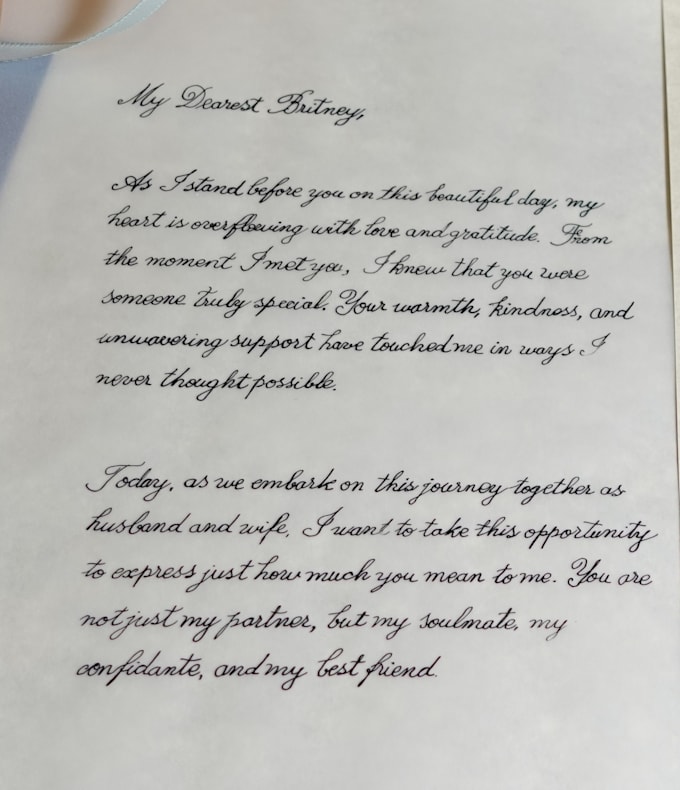 My Dearest Britney,
As I stand before you on this beautiful day, my
heart is overflowing with love and gratitude. From
the moment I met you, I knew that you were
someone truly special. Your warmth, kindness, and
unwavering support have touched me in ways I
never thought possible.
Today, as we embark on this journey together as
husband and wife, I want to take this opportunity
to express just how much you mean to me. You are
not just my partner, but my soulmate, my
confidante, and my best friend.